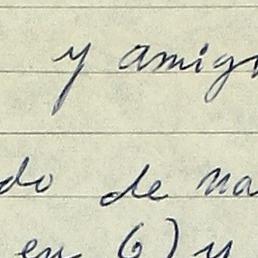 y amig
do de na
en 6) y